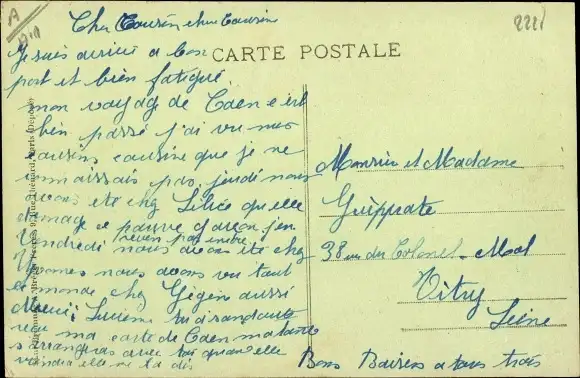 A
2221
Cher Cousin chere Cousine
Je suis arrivé a bon
port et bien fatigué.
mon voyage de Caen c est
bien passé j'ai vu mes
cousins cousine que je ne
connaissais pas, jeudi nous
avons eté chez quelle
domage ce pauvre garçon j'en
reviens pas encore
Vendredi nous avons eté chez
Yvonnes nous avons vu tout
le monde chez aussi
Lucien tu
recu ma carte de Caen ma tante
s arrangeras avec toi quand elle
viendra elle me la dis
CARTE POSTALE
Monsieur et Madame
Guippate
38 rue du Colonel-Mol
Vitry
Seine
Bons Baisers a tous trois